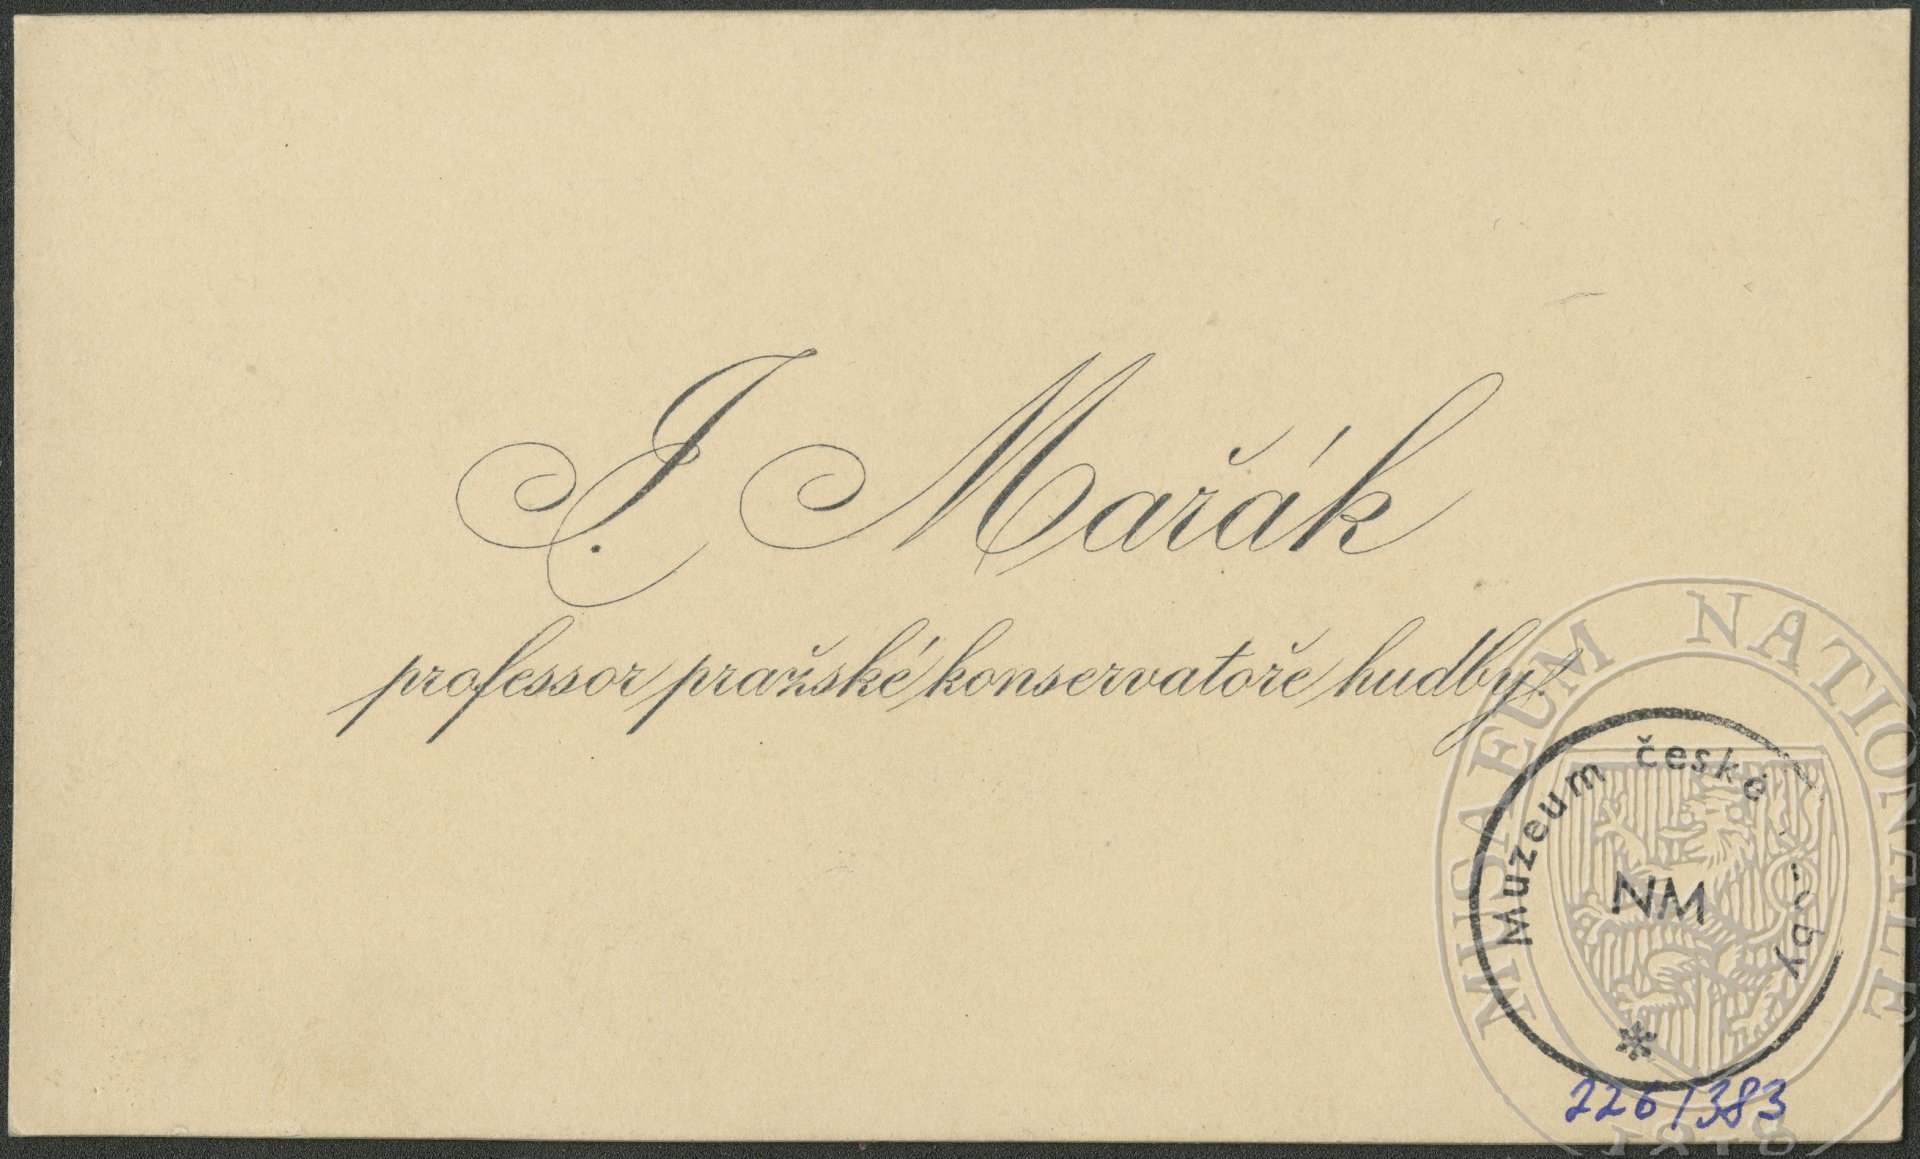 J. Mařák
professor pražské konservatoře hudby.
MUSAEUM NATIONALE
Muzeum české
NM
*
226/383
1818